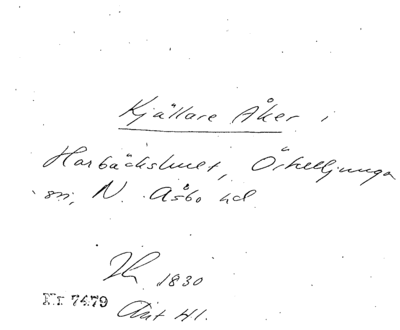 Kjällare Åker i
Harbäckshult, Örkelljunga
sn, N. Åsbo hd.
1830
Nr 7479
Ant 41.